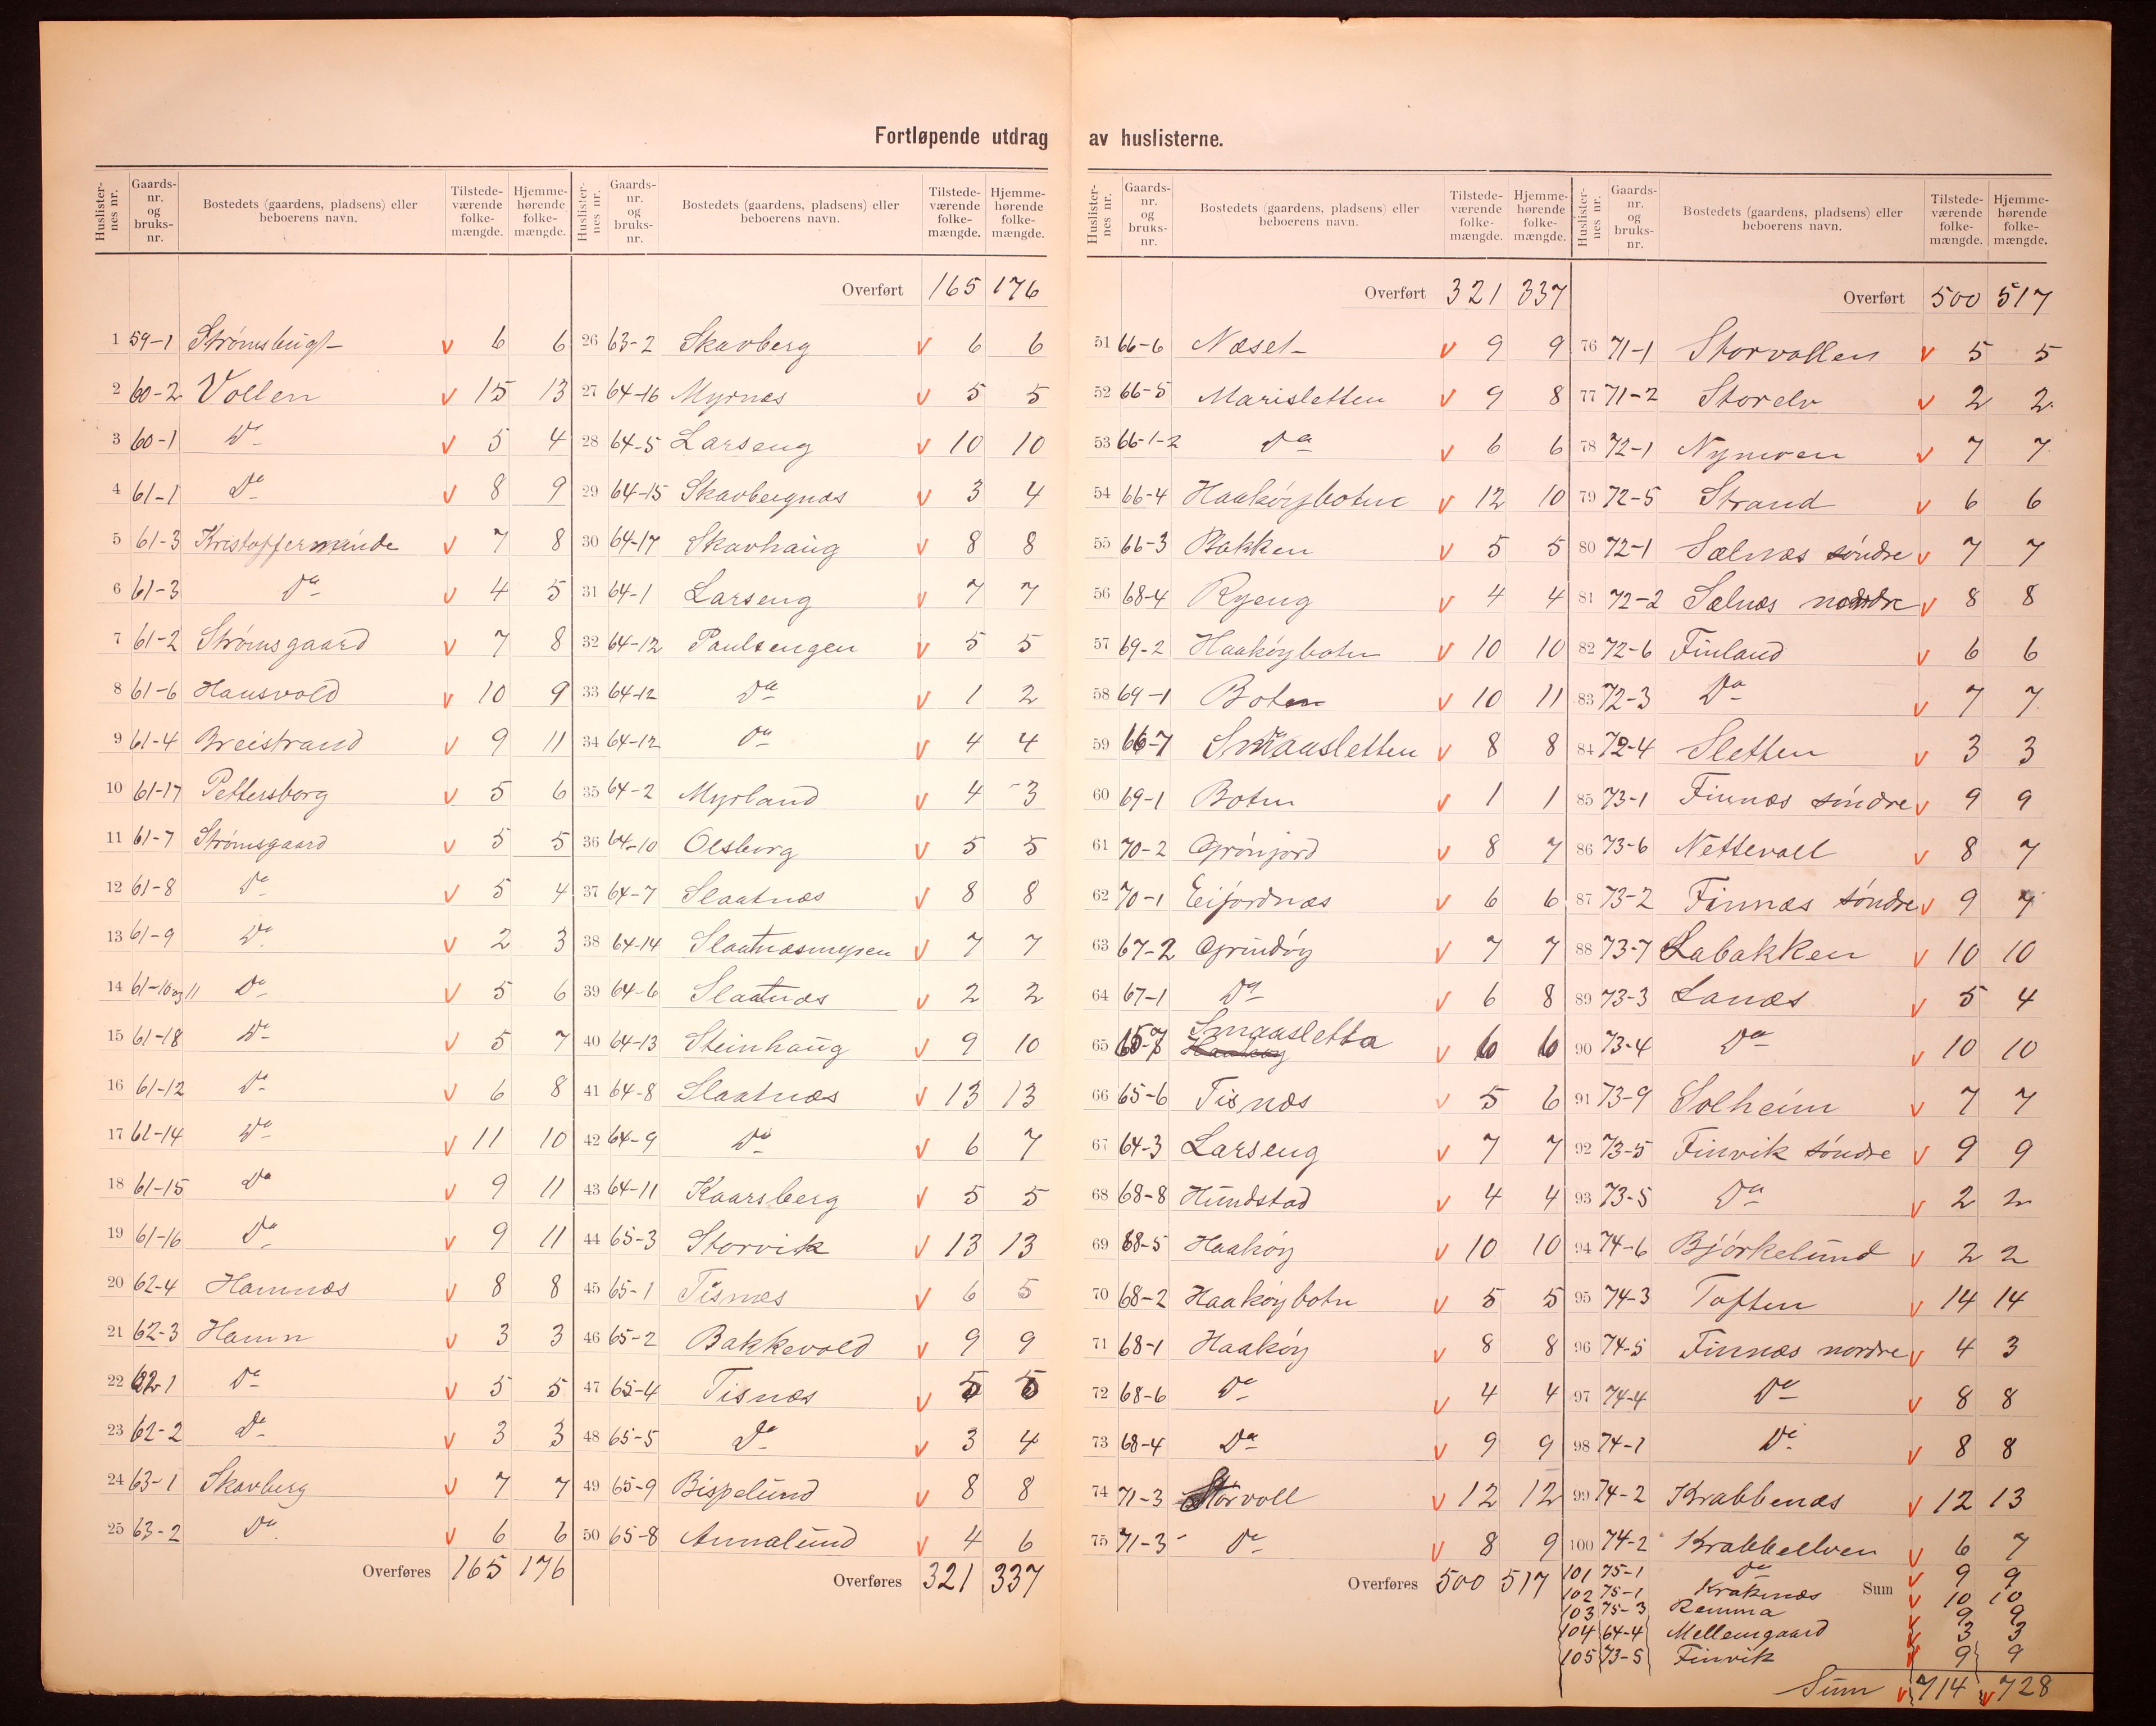 Fortløpende utdrag av huslisterne.
Huslister-nes nr. Gaards-nr. og bruks-nr. Bostedets (gaardens, pladsens) eller beboerens navn. Tilstede-værende folke-mængde. Hjemme-hørende folke-mængde.
1 59-1 Strømsbugt v 6 6
2 60-2 Vollen v 15 13
3 60-1 Do v 5 4
4 61-1 Do v 8 9
5 61-3 Kristofferminde v 7 8
6 61-3 Do v 4 5
7 61-2 Strømsgaard v 7 8
8 61-6 Hansvold v 10 9
9 61-4 Breistrand v 9 11
10 61-17 Pettersborg v 5 6
11 61-7 Strømsgaard v 5 5
12 61-8 Do v 5 4
13 61-9 Do v 2 3
14 61-10 og 11 Do v 5 6
15 61-18 Do v 5 7
16 61-12 Do v 6 8
17 61-14 Do v 11 10
18 61-15 Do v 9 11
19 61-16 Do v 9 11
20 62-4 Hamnæs v 8 8
21 62-3 Hamn v 3 3
22 62-1 Do v 5 5
23 62-2 Do v 3 3
24 63-1 Skavberg v 7 7
25 63-2 Do v 6 6
Overføres 165 176
Huslister-nes nr. Gaards-nr. og bruks-nr. Bostedets (gaardens, pladsens) eller beboerens navn. Tilstede-værende folke-mængde. Hjemme-hørende folke-mængde.
Overført 165 176
26 63-2 Skavberg v 6 6
27 64-16 Myrnæs v 5 5
28 64-5 Larseng v 10 10
29 64-15 Skavbergnæs v 3 4
30 64-17 Skavhaug v 8 8
31 64-1 Larseng v 7 7
32 64-12 Paulsengen v 5 5
33 64-12 Do v 1 2
34 64-12 Do v 4 4
35 64-2 Myrland v 4 3
36 64-10 Olsborg v 5 5
37 64-7 Slaatnæs v 8 8
38 64-14 Slaatnæsmyren v 7 7
39 64-6 Slaatnæs v 2 2
40 64-13 Steinhaug v 9 10
41 64-8 Slaatnæs v 13 13
42 64-9 Do v 6 7
43 64-11 Kaarsberg v 5 5
44 65-3 Storvik v 13 13
45 65-1 Tisnæs v 6 5
46 65-2 Bakkevold v 9 9
47 65-4 Tisnæs v 5 5
48 65-5 Do v 3 4
49 65-9 Bispelund v 8 8
50 65-8 Annalund v 4 6
Overføres 321 337
Huslister-nes nr. Gaards-nr. og bruks-nr. Bostedets (gaardens, pladsens) eller beboerens navn. Tilstede-værende folke-mængde. Hjemme-hørende folke-mængde.
Overført 321 337
51 66-6 Næset v 9 9
52 66-5 Marisletten v 9 8
53 66-1-2 Do v 6 6
54 66-4 Haakøybotn v 12 10
55 66-3 Bakken v 5 5
56 68-4 Ryeng v 4 4
57 69-2 Haakøybotn v 10 10
58 69-1 Botn v 10 11
59 66-7 Smaasletten v 8 8
60 69-1 Botn v 1 1
61 70-2 Grønjord v 8 7
62 70-1 Eifjordnæs v 6 6
63 67-2 Grindøy v 7 7
64 67-1 Do v 6 8
65 65-7 Smaasletta v 6 6
66 65-6 Tisnæs v 5 6
67 64-3 Larseng v 7 7
68 68-8 Hundstad v 4 4
69 68-5 Haakøy v 10 10
70 68-2 Haakøybotn v 5 5
71 68-1 Haakøy v 8 8
72 68-6 Do v 4 4
73 68-4 Do v 9 9
74 71-3 Storvoll v 12 12
75 71-3 Do v 8 9
Overføres 500 517
Huslister-nes nr. Gaards-nr. og bruks-nr. Bostedets (gaardens, pladsens) eller beboerens navn. Tilstede-værende folke-mængde. Hjemme-hørende folke-mængde.
Overført 500 517
76 71-1 Storvollen v 5 5
77 71-2 Storelv v 2 2
78 72-1 Nymoen v 7 7
79 72-5 Strand v 6 6
80 72-1 Sælnæs søndre v 7 7
81 72-2 Sælnæs nordre v 8 8
82 72-6 Finland v 6 6
83 72-3 Do v 7 7
84 72-4 Sletten v 3 3
85 73-1 Finnæs søndre v 9 9
86 73-6 Nettevoll v 8 7
87 73-2 Finnæs søndre v 9 7
88 73-7 Labakken v 10 10
89 73-3 Lanæs v 5 4
90 73-4 Do v 10 10
91 73-9 Solheim v 7 7
92 73-5 Finvik søndre v 9 9
93 73-5 Do v 2 2
94 74-6 Bjørkelund v 2 2
95 74-3 Toften v 14 14
96 74-5 Finnæs nordre v 4 3
97 74-4 Do v 8 8
98 74-1 Do v 8 8
99 74-2 Krabbenæs v 12 13
100 74-2 Krabbelven v 6 7
101 75-1 Do v 9 9
Sum
102 75-1 Kraknæs v 10 10
103 75-3 Remma v 9 9
104 64-4 Mellemgaard v 3 3
105 73-5 Finvik v 9 9
Sum v 714 v 728